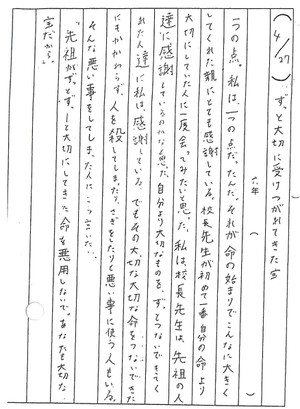 (4/27) ずっと大切に受けつがれてきた宝
六年 ( )
一つの点。私は、一つの点だったんだ。それが命の始まりでこんなに大きく
してくれた親にとても感謝している。校長先生が初めて一番自分の命より
大切にしていた人に一度会ってみたいと思った。私は、校長先生は、先祖の人
達に感謝しているかなと思った。自分より大切なものを、ずっとつないできてく
れた人達に私は、感謝している。でもその大切な大切な命をつないできた
にもかかわらず、人を殺してしまったり、さぎをしたりと悪い事に使う人もいる。
そんな悪い事をしてしまった人にこう言いたい。
「先祖がずっとずーっと大切にしてきた命を悪用しないで。あなたも大切な
宝だから。」